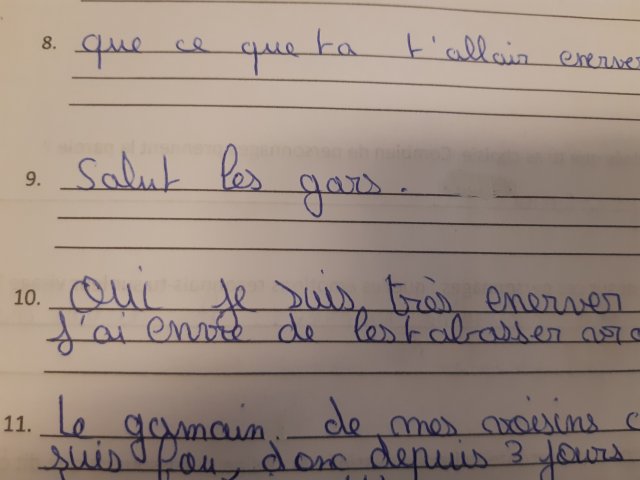 8. que ce que ta t'allair enerver
9. Salut les gars.
10. Oui je suis très enerver
j'ai envie de les tabasser
11. Le gamain de mes voisins
suis fou, donc depuis 3 jours